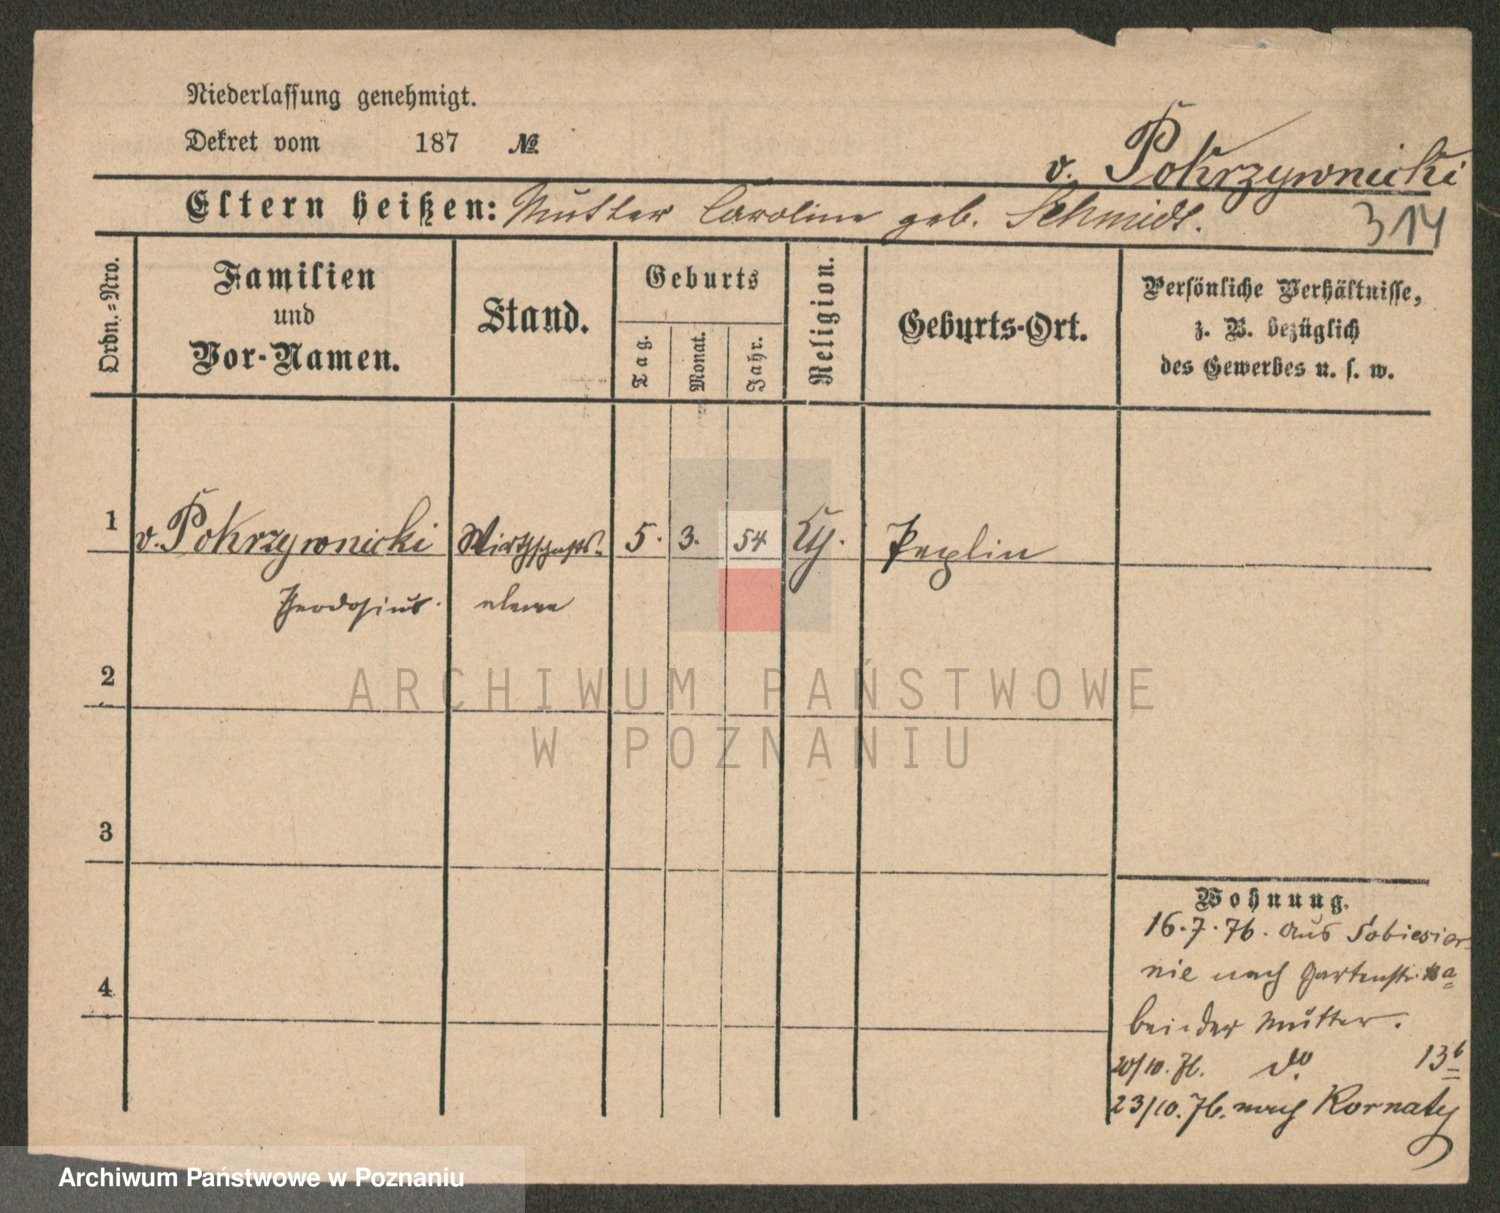 Niederlassung genehmigt.
Dekret vom 187 №
v. Pokrzywnicki
Eltern heißen: Mutter Caroline geb. Schmidt.
314
Ordn.=Nro.
Familien
und
Vor-Namen.
Stand.
Geburts
Tag.
Monat.
Jahr.
Religion.
Geburts-Ort.
Persönliche Verhältnisse,
z. B. bezüglich
des Gewerbes u. s. w.
1 v. Pokrzywnicki Wirthschafts- 5. 3. 54 Peplin
Theodosius. eleve
2
ARCHIWUM PAŃSTWOWE
W POZNANIU
3
4
Wohnung.
16.7.76. aus Sobiesier-
nie nach Gartenstr. a
bei der Mutter.
20/10.76. do 13b
23/10.76. nach Kornaty
Archiwum Państwowe w Poznaniu